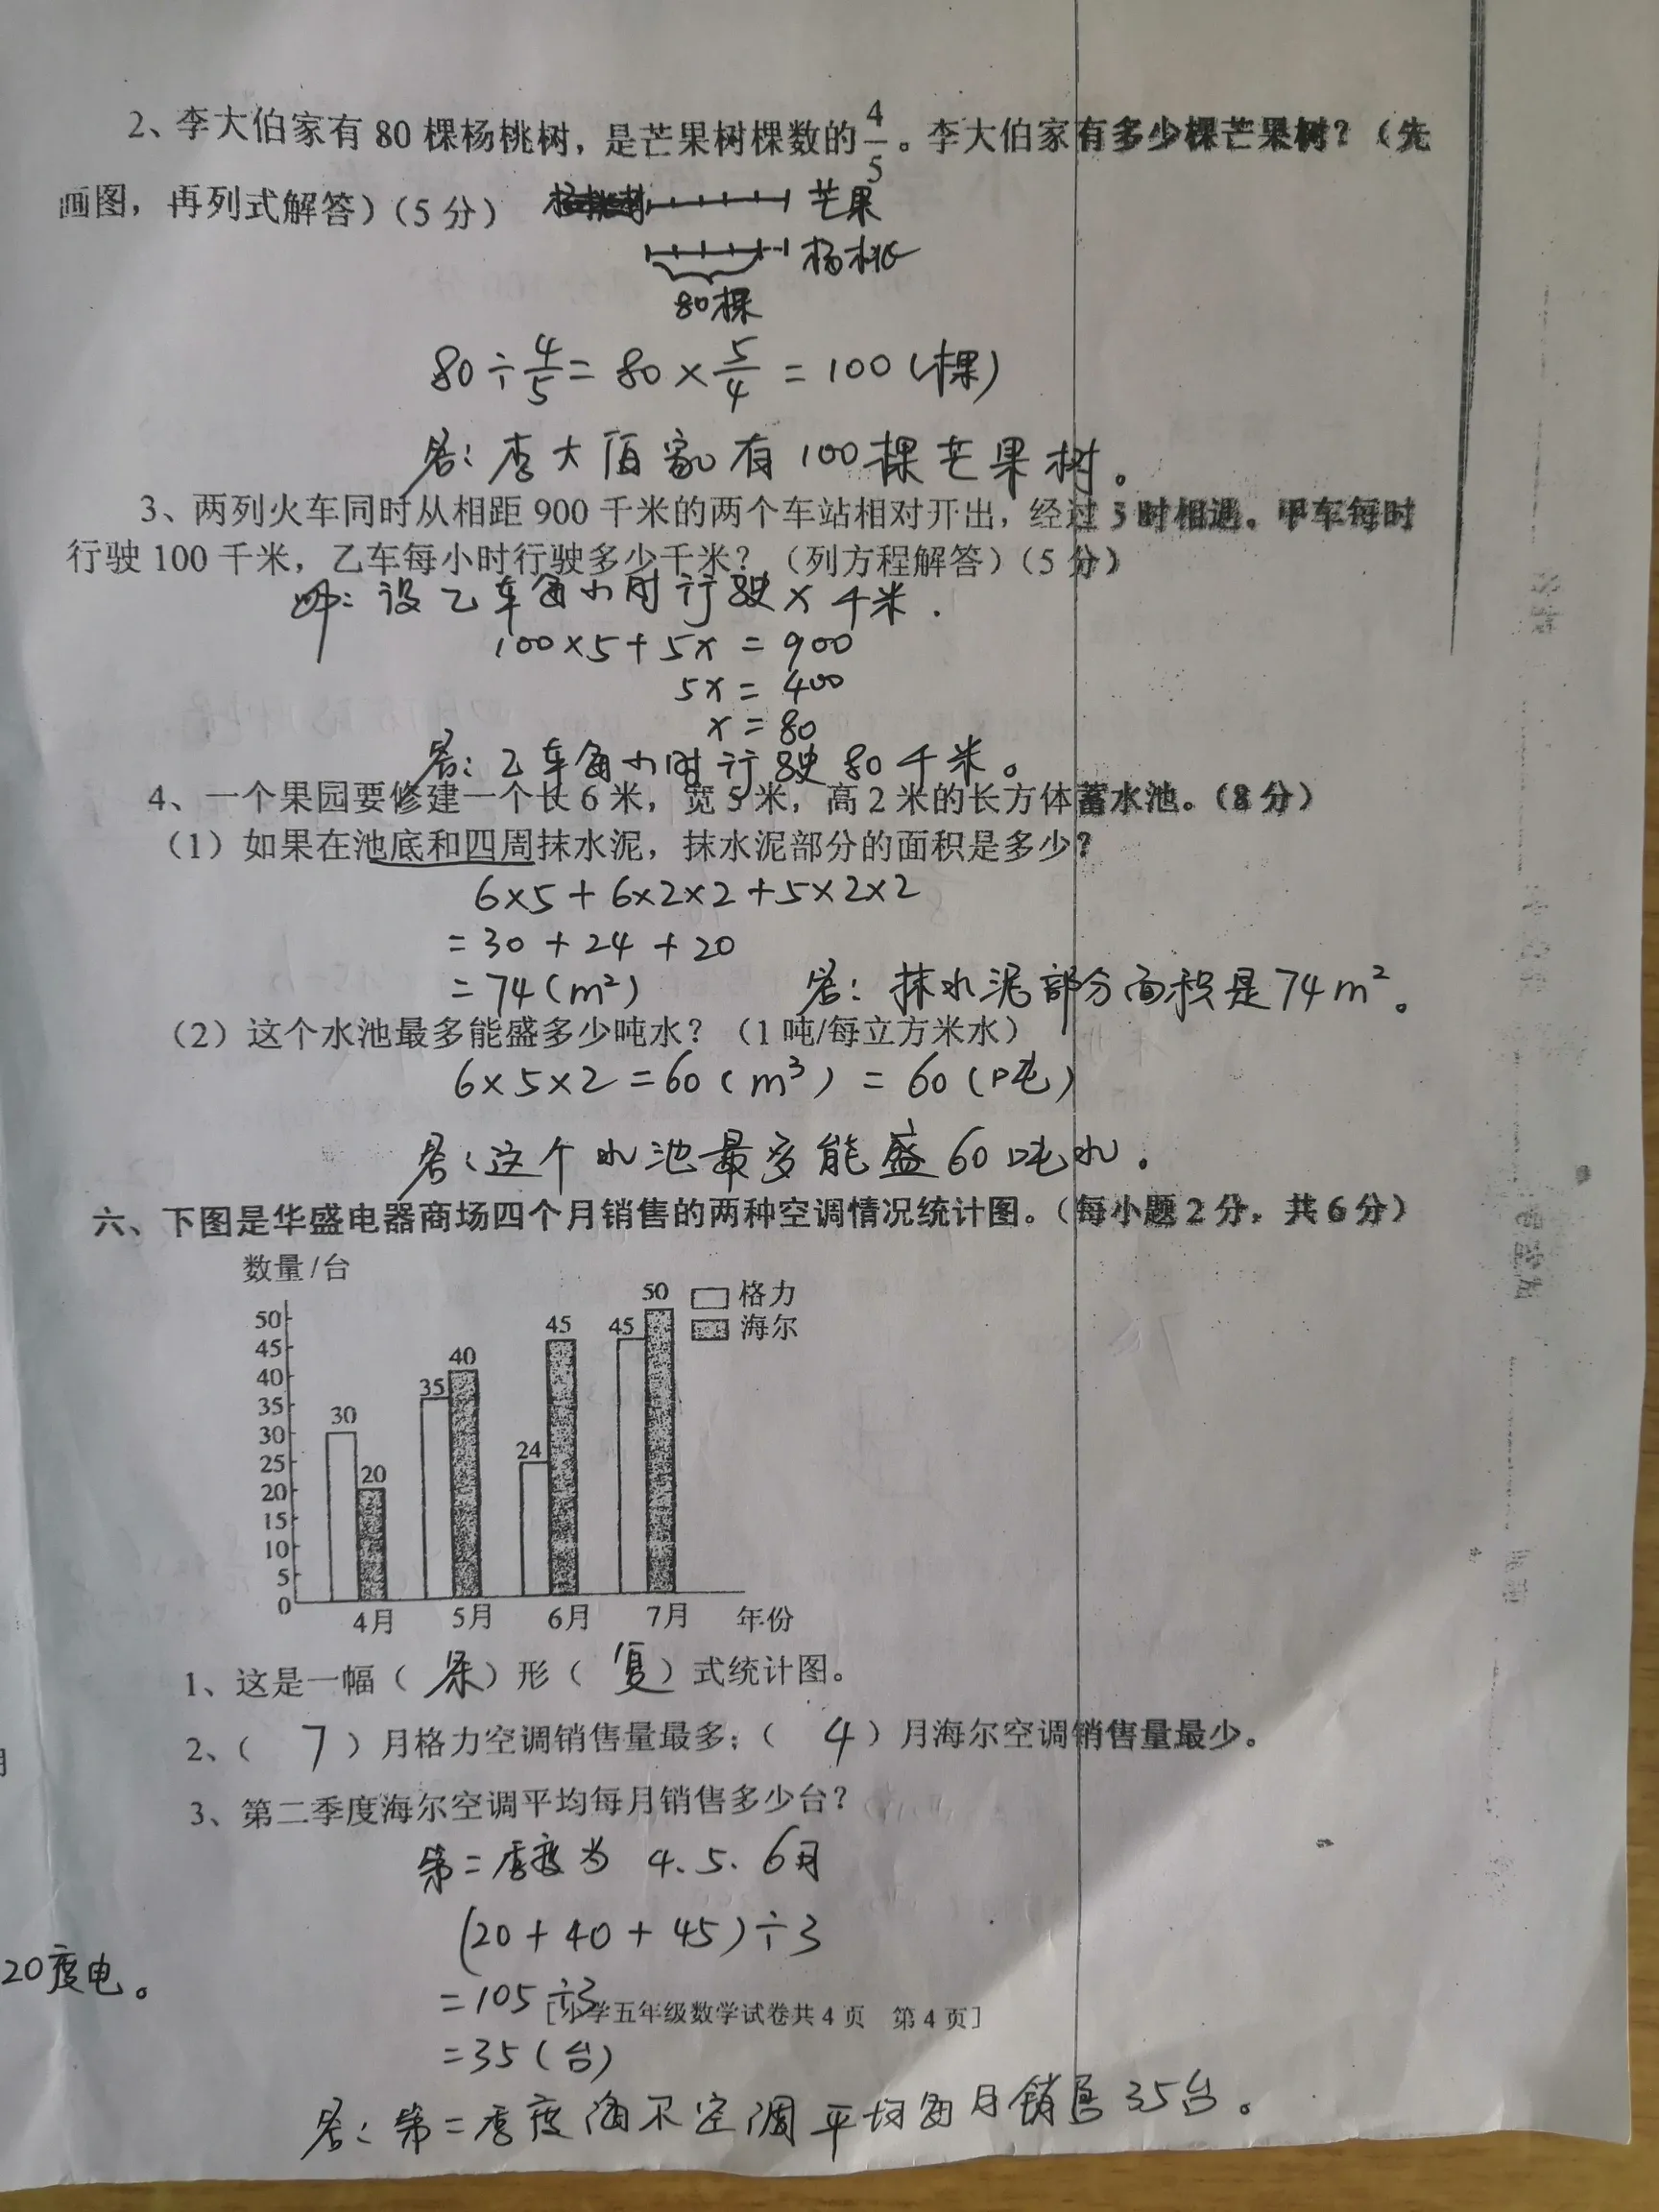 2、李大伯家有 80 棵杨桃树，是芒果树棵数的 4/5 。李大伯家有多少棵芒果树？（先
画图，再列式解答）（5 分）
芒果
杨桃
80棵
80÷4/5=80×5/4=100（棵）
答：李大伯家有100棵芒果树。
3、两列火车同时从相距 900 千米的两个车站相对开出，经过 5 时相遇。甲车每时
行驶 100 千米，乙车每小时行驶多少千米？（列方程解答）（5 分）
解：设乙车每小时行驶x千米.
100×5+5x=900
5x=400
x=80
答：乙车每小时行驶80千米。
4、一个果园要修建一个长 6 米，宽 5 米，高 2 米的长方体蓄水池。（8 分）
（1）如果在池底和四周抹水泥，抹水泥部分的面积是多少？
6×5+6×2×2+5×2×2
=30+24+20
=74(m²) 答：抹水泥部分面积是74m²。
（2）这个水池最多能盛多少吨水？（1 吨/每立方米水）
6×5×2=60(m³)=60(吨)
答：这个水池最多能盛60吨水.
六、下图是华盛电器商场四个月销售的两种空调情况统计图。（每小题 2 分，共 6 分）
数量/台
格力
海尔
50
45
40
35
30
25
20
15
10
5
0
30
20
35
40
24
45
45
50
4月 5月 6月 7月 年份
1、这是一幅（ 条 ）形（ 复 ）式统计图。
2、（ 7 ）月格力空调销售量最多；（ 4 ）月海尔空调销售量最少。
3、第二季度海尔空调平均每月销售多少台？
第二季度为 4.5.6月
(20+40+45)÷3
=105÷3
20度电。
[小学五年级数学试卷共 4 页 第 4 页]
=35(台)
答：第二季度海尔空调平均每月销售35台。